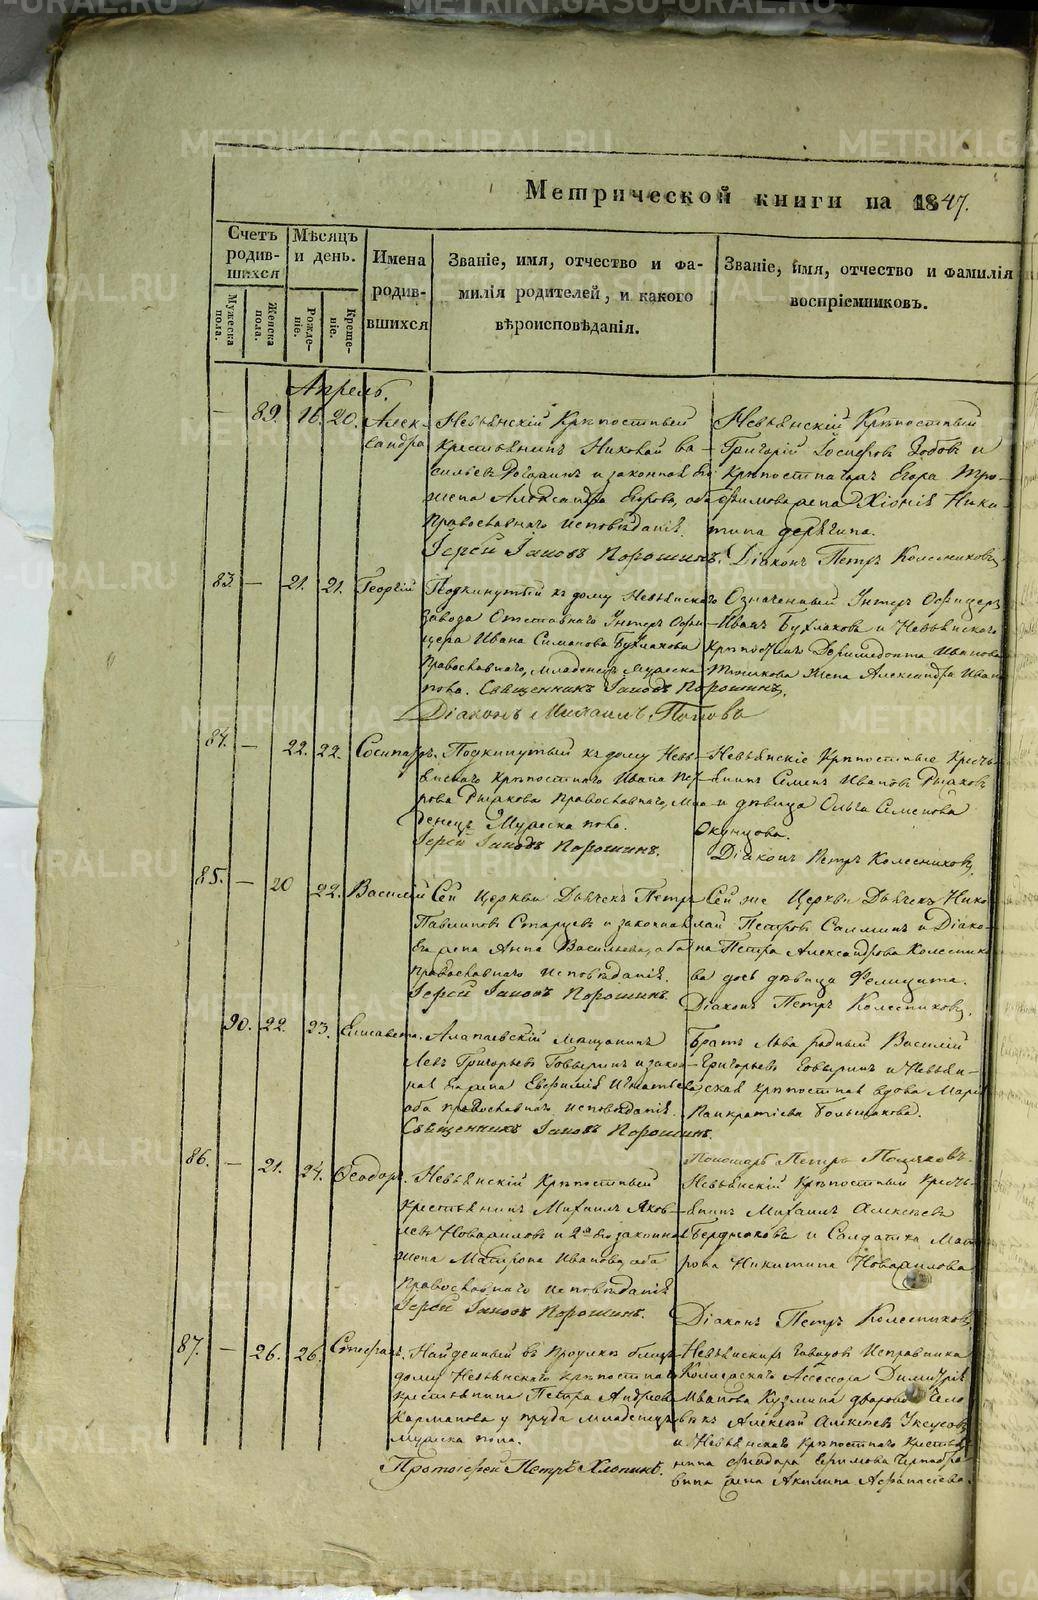 METRIKI.GASO-URAL.RU
Метрической книги на 1847.
Счетъ родив-шихся
Мѣсяцъ и день.
Имена родив-вшихся
Званіе, имя, отчество и фа-
милія родителей, и какого
вѣроисповѣданія.
Званіе, имя, отчество и фамилія
воспріемниковъ.
Мужеска пола.
Женска пола.
Рожде-ніе.
Креще-ніе.
Апрель.
— 89. 16. 20. Алек-сандра
Невьянскій Крѣпостный
крестьянинъ Николай Ва-
сильевъ и законная его
жена Александра Егорова, оба
православнаго исповѣданія.
Іерей Іаковъ Порошинъ.
Невьянскій Крѣпостный
Григорій Іосифовъ Зобовъ и
Крѣпостнаго Егора Тро-
фимова жена Хіонія Ники-
тина
Діаконъ Петръ Колесниковъ
83. — 21. 21. Георгій
Подкинутый къ дому Невьянскаго
завода Отставнаго Унтеръ Офи-
цера Ивана Симонова Бухлакова
Православнаго, младенецъ мужеска
пола. Священникъ Іаковъ Порошинъ.
Діаконъ Михаилъ Поповъ
Означенный Унтеръ Офицеръ
Иванъ Бухлаковъ и Невьянскаго
Крѣпостнаго Ивана
жена Александра Иван
84. — 22. 22. Сосипатръ.
Подкинутый къ дому Невь-
янскаго крѣпостнаго Ивана Пет-
рова Рыжкова Православнаго, мла-
денецъ Мужеска пола.
Іерей Іаковъ Порошинъ.
Невьянскіе Крѣпостные Кресть-
янинъ Семенъ Ивановъ
и дѣвица Ольга Семенова
Окунцова.
Діаконъ Петръ Колесниковъ,
85. — 20 22. Василій
Сей Церкви Дьячекъ Петръ
Павлиновъ и законная
его жена Анна Васильева, оба
православнаго исповѣданія.
Іерей Іаковъ Порошинъ.
Сей же Церкви Дьячекъ Нико-
лай Петровъ Салминъ и Діако-
на Петра Александрова Колеснико-
ва дочь дѣвица Фелицата.
Діаконъ Петръ Колесниковъ,
90. 22. 23. Елисавета.
Алапаевскій мѣщанинъ
Левъ Григорьевъ и закон-
ная его жена Евфимія Игнатьева
оба православнаго исповѣданія.
Священникъ Іаковъ Порошинъ.
Братъ Льва родный Василій
Григорьевъ и Невьян-
ская крѣпостная вдова Марія
Панкратіева Большакова.
Пономарь Петръ
86. — 21. 24. Ѳеодоръ.
Невьянскій Крѣпостный
Крестьянинъ Михаилъ Яков-
левъ и 2го законная
жена Матрона Иванова, оба
Православнаго исповѣданія
Іерей Іаковъ Порошинъ.
Невьянскій Крѣпостный Кресть-
янинъ Михаилъ Алексѣевъ
Бердюковъ и Солдатка Мат-
рона Никитина
Діаконъ Петръ Колесниковъ,
87. — 26. 26. Стефанъ.
Найденный въ Проулкѣ близъ
дому Невьянскаго крѣпостнаго
крестьянина Петра Андреева
Карманова у пруда младенецъ
мужеска пола.
Протоіерей Петръ Хлопинъ.
Невьянскихъ Заводовъ Исправника
Коллежскаго Ассесора Димитрія
Иванова Кузмина дворовой чело-
вѣкъ Алексѣй Алексѣевъ
и Невьянскаго Крѣпостнаго Крестья-
нина Ѳеодора Ефимова
жена Акилина Аѳанасіева.